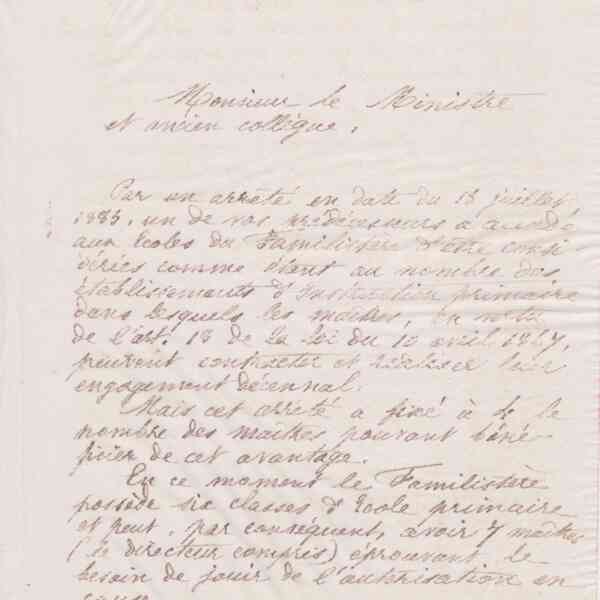 Monsieur le Ministre
et ancien collègue,
Par un arrêté en date du 18 juillet
1883, un de vos prédécesseurs a accordé
aux Ecoles du Familistère d'être consi
dérées comme étant au nombre des
établissements d'Instruction primaire
dans lesquels les maîtres, en vertu
de l'art. 18 de la loi du 10 avril 1867,
peuvent contracter et réaliser leur
engagement décennal.
Mais cet arrêté a fixé à 4 le
nombre des maîtres pouvant béné
ficier de cet avantage.
En ce moment le Familistère
possède six classes d'Ecole primaire
et peut, par conséquent, avoir 7 maîtres
(le directeur compris) éprouvant le
besoin de jouir de l'autorisation en